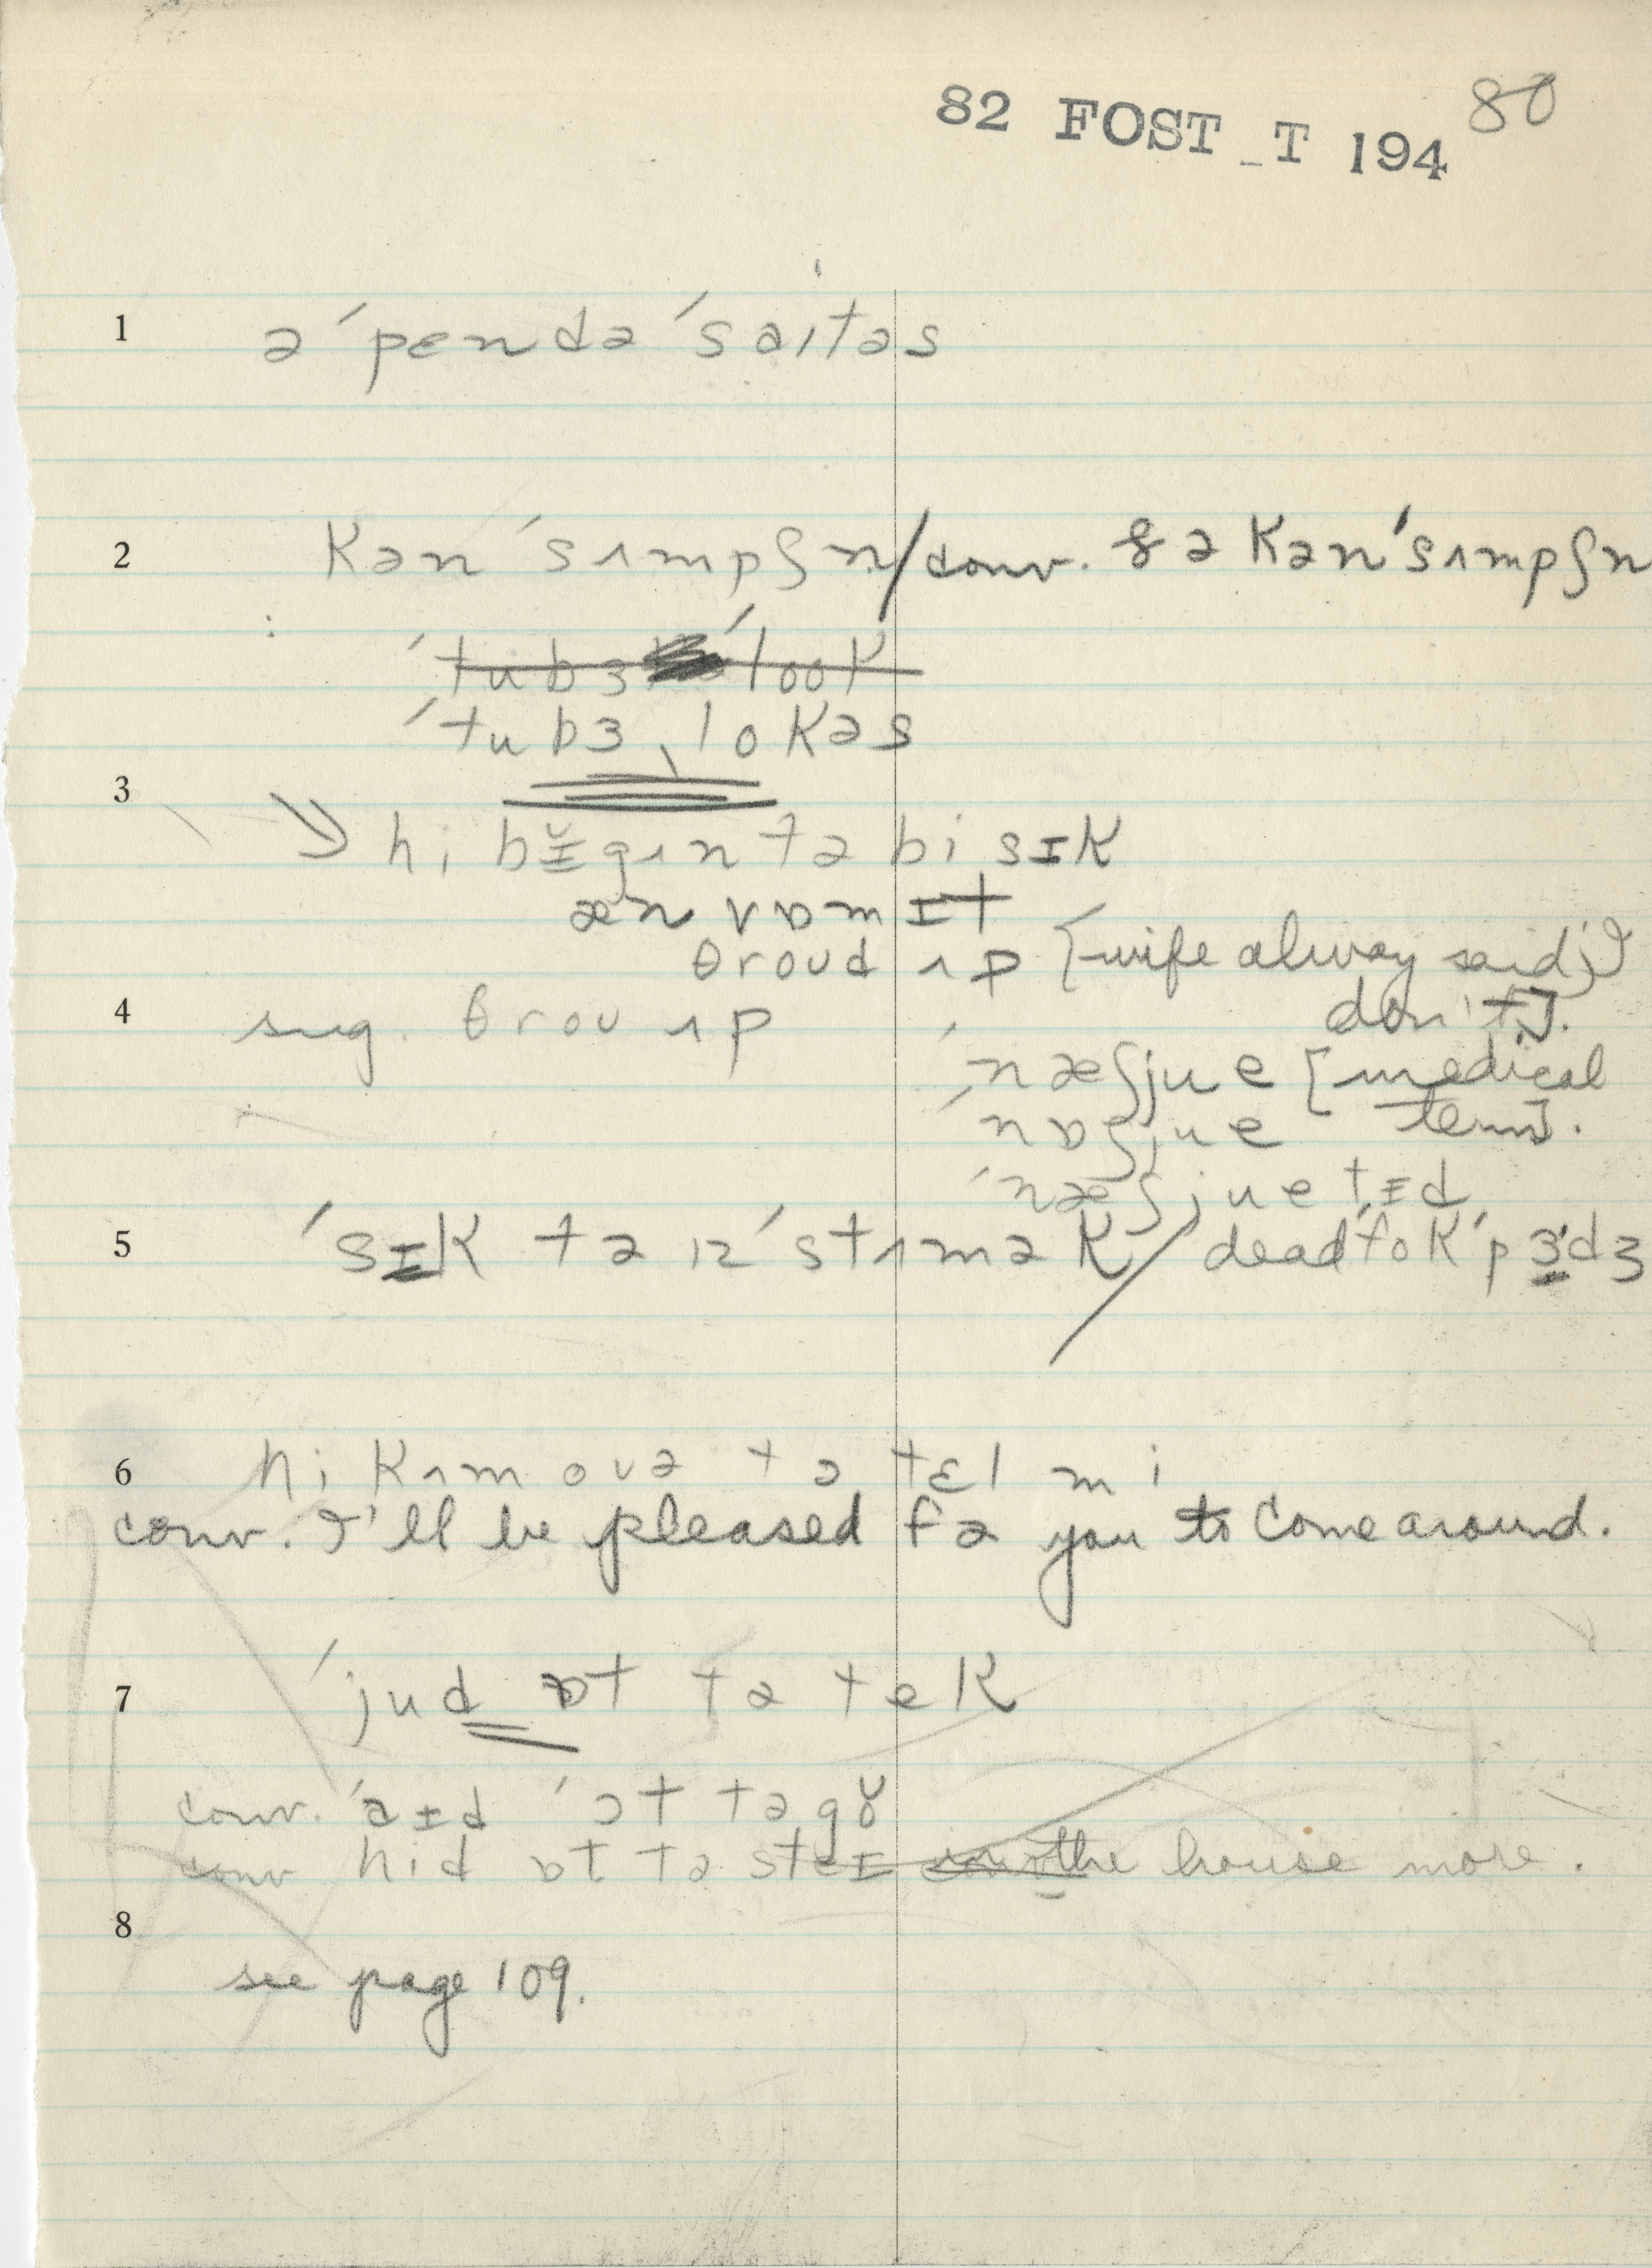 82 FOST_T 194 80
1 ə ˈpɛndəˈsaɪtəs
2 kənˈsʌmpʃn̩ / conv. & ə kənˈsʌmpʃn
ˈtubɜ ˈlook
ˈtubɜˌlokəs
3
→ hi bɪ̆gʌn tə bi sɪk
æn vɒmɪt
θroud ʌp [wife alway said, I
4 sug. θrou ʌp don't].
ˈnæʃjue [medical
ˈnɒʃjue term].
ˈnæʃjuetɪd
5 ˈsɪk tə ɪz ˈstʌmək / dead ˈfokˈpɜdʒ
6 hi kʌm ovə tə tɛl mi
conv. I'll be pleased fə you to come around.
7 ˈjud ɒt tə tek
conv. ˈaɪd ˈɔt tə gŏ
conv hid ɒt tə steɪ in the house more.
8
see page 109.